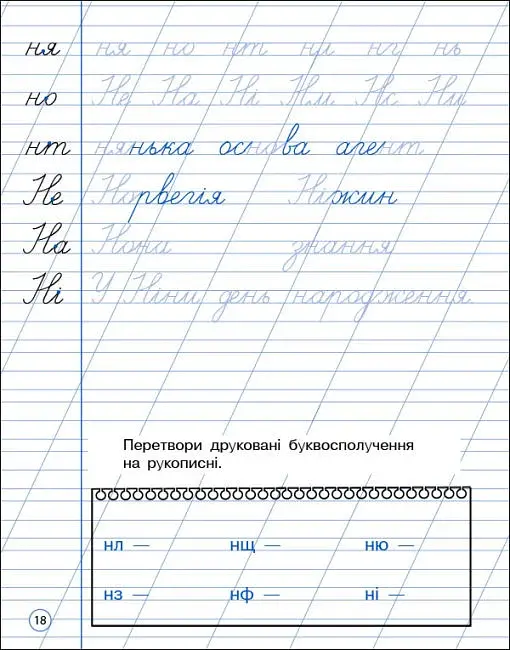 ня ня но нт ни нг нь
но Не На Ні Нм Нс Ни
нт нянька основа агент
Не Норвегія Ніжин
На Ножа знання
Ні У Ніни день народження
Перетвори друковані буквосполучення
на рукописні.
нл — нщ — ню —
нз — нф — ні —
18